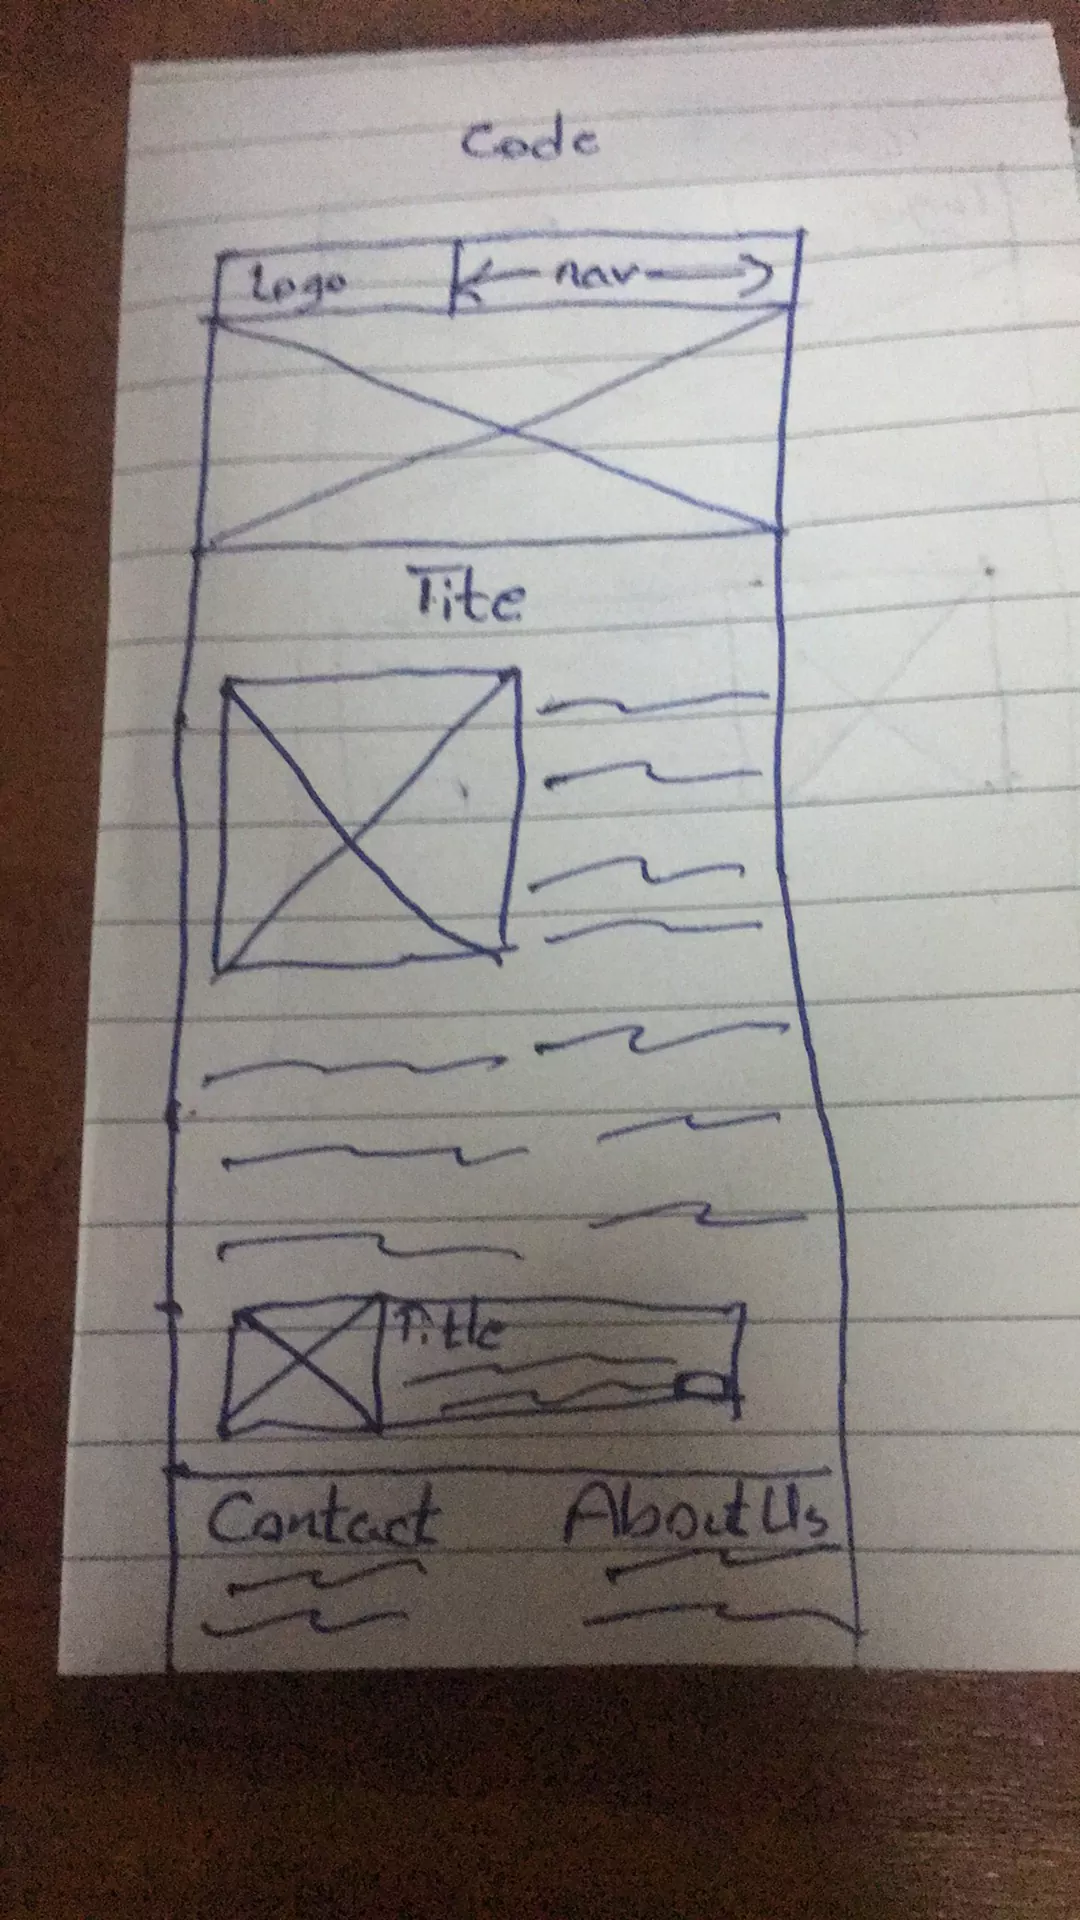 Code
Logo nav
Tite
Title
Contact About Us